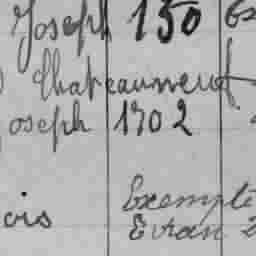 Joseph 150 Ex
Chateauneuf
Joseph 1702
Exempté
ois Evran